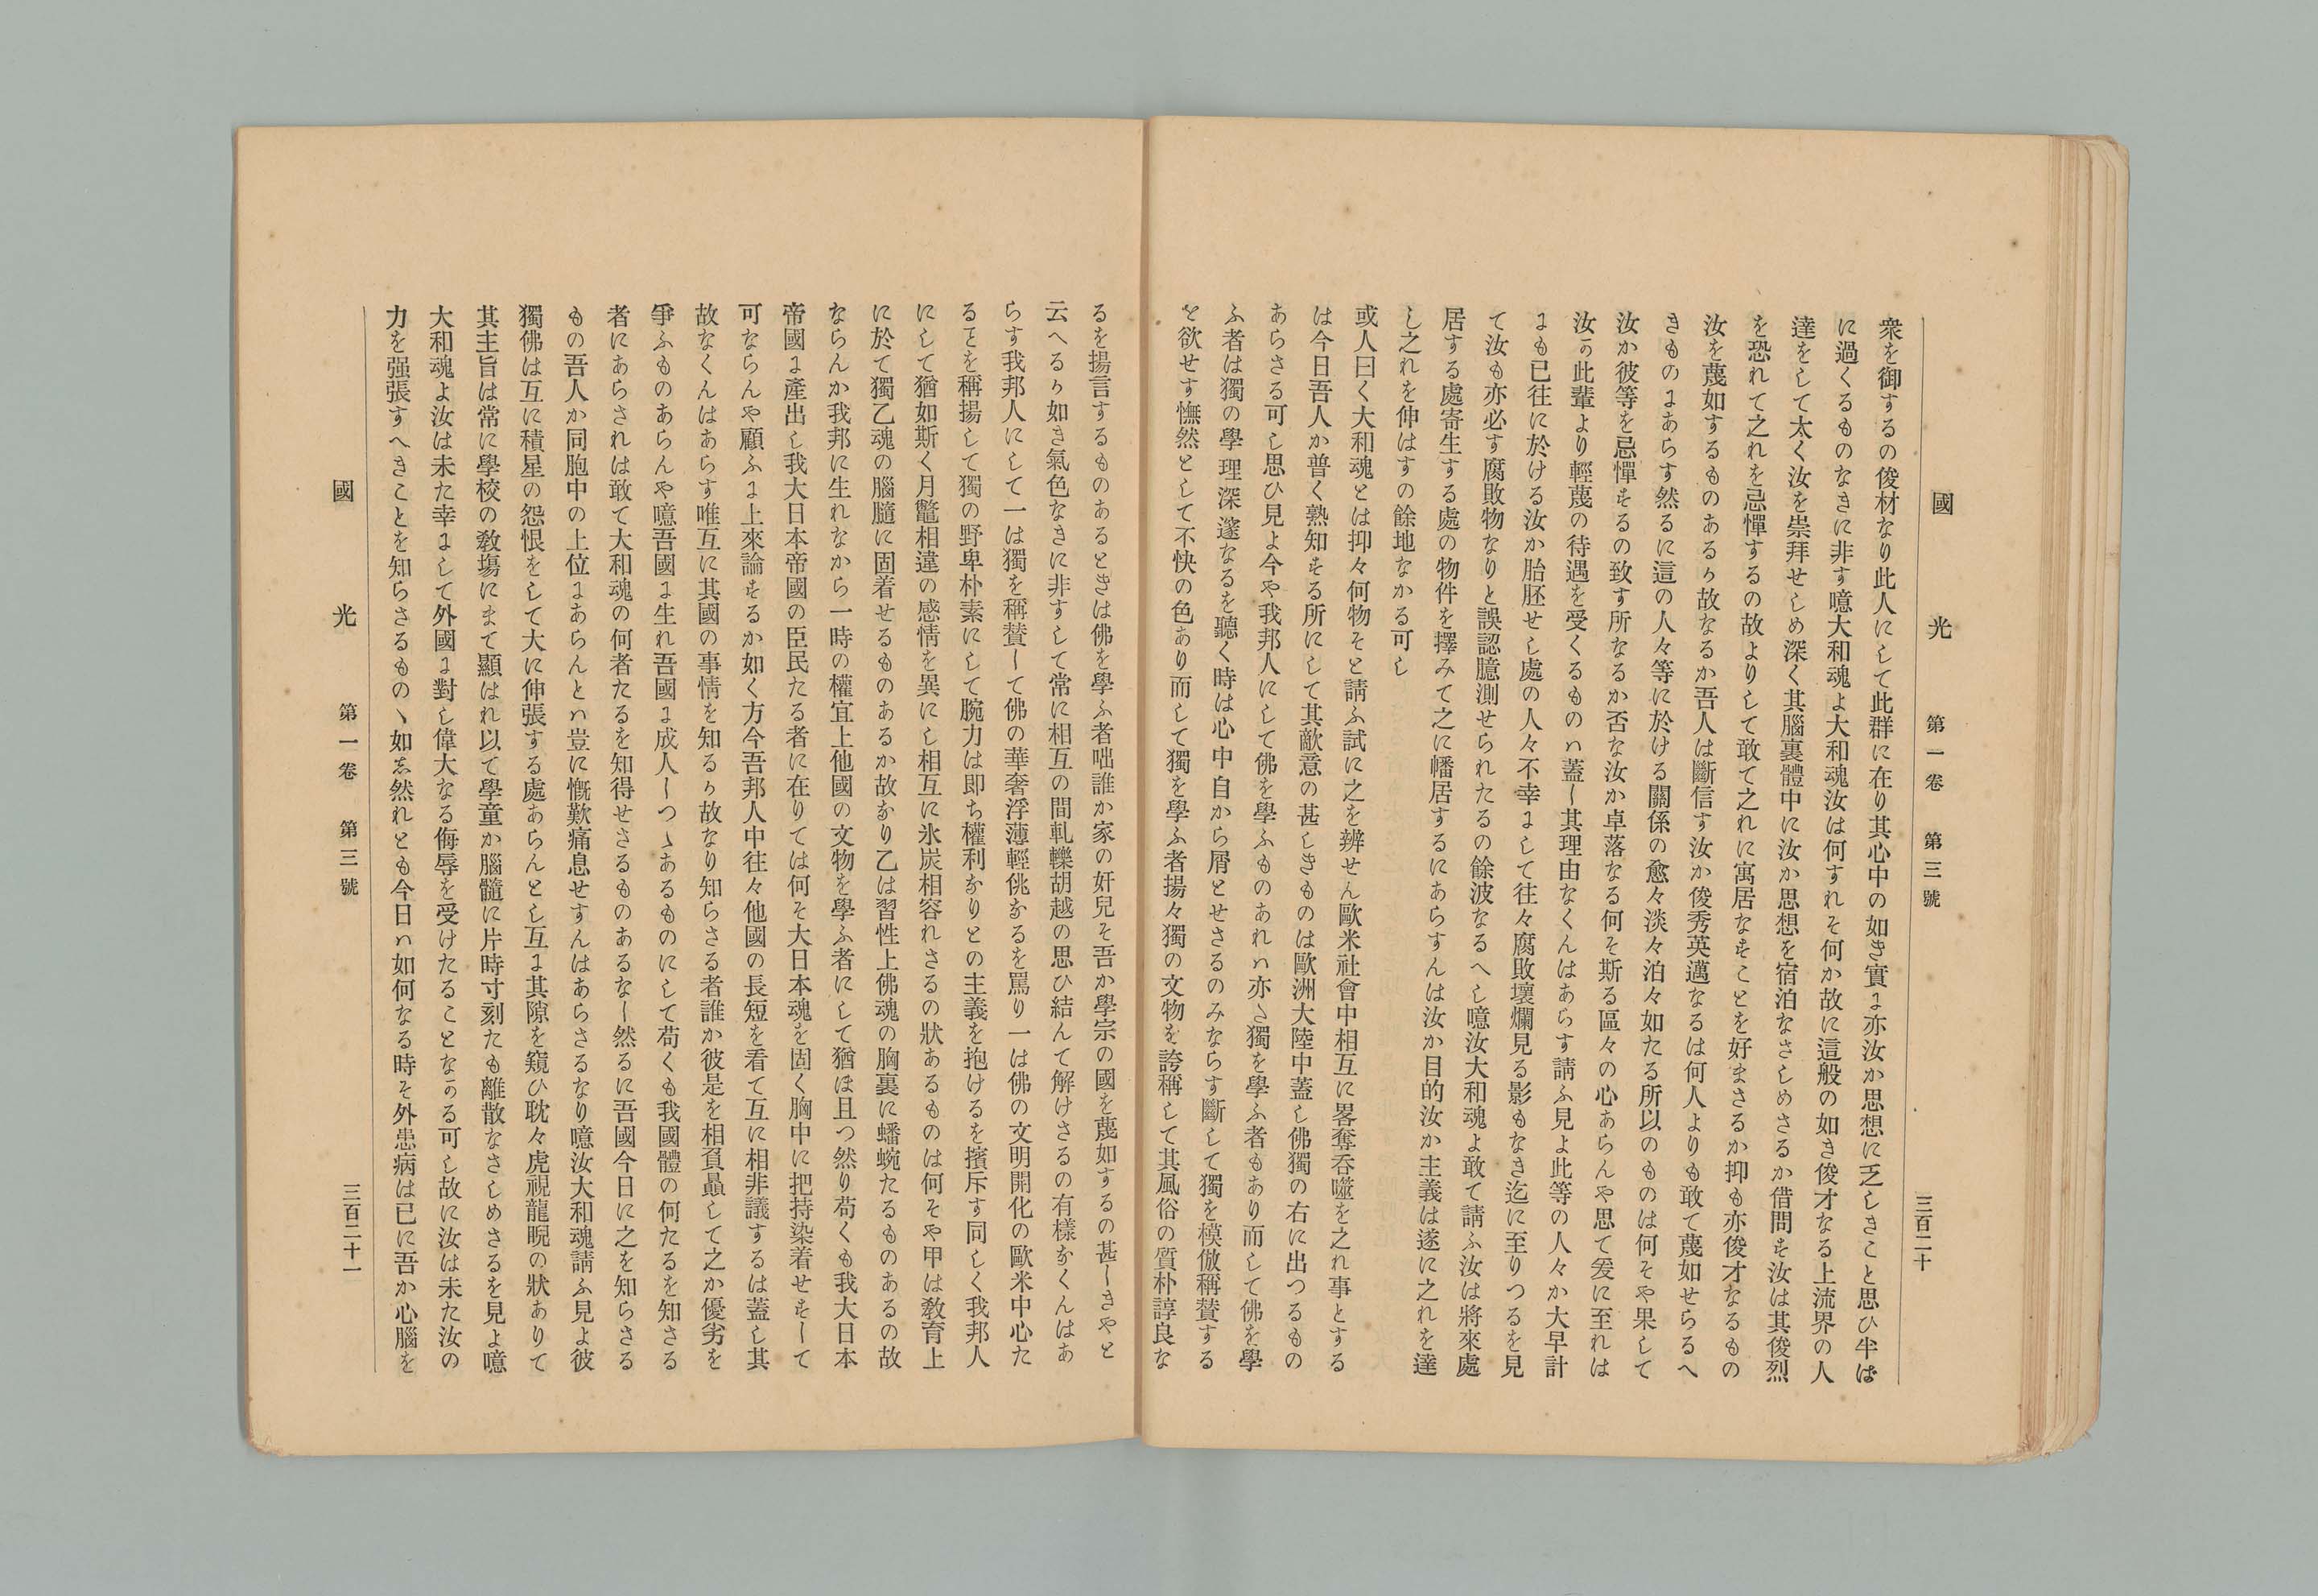 國光 第一卷 第三號 三百二十
衆を御するの俊材なり此人にして此群に在り其心中の如き實に亦汝か思想に乏しきこと思ひ半は
に過くるものなきに非す噫大和魂よ大和魂汝は何すれそ何か故に這般の如き俊才なる上流界の人
達をして太く汝を崇拜せしめ深く其腦裏體中に汝か思想を宿泊なさしめさるか借問す汝は其俊烈
を恐れて之れを忌憚するの故よりして敢て之れに寓居なすことを好まさるか抑も亦俊才なるもの
汝を蔑如するものあるか故なるか吾人は斷信す汝か俊秀英邁なるは何人よりも敢て蔑如せらるへ
きものにあらす然るに這の人々等に於ける關係の愈々淡々泊々如たる所以のものは何そや果して
汝か彼等を忌憚するの致す所なるか否な汝か卓落なる何そ斯る區々の心あらんや思て爰に至れは
汝か此輩より輕蔑の待遇を受くるものハ蓋し其理由なくんはあらす請ふ見よ此等の人々か大早計
にも已往に於ける汝か胎胚せし處の人々不幸にして往々腐敗壞爛見る影もなき迄に至りつるを見
て汝も亦必す腐敗物なりと誤認臆測せられたるの餘波なるへし噫汝大和魂よ敢て請ふ汝は將來處
居する處寄生する處の物件を擇みて之に幡居するにあらすんは汝か目的汝か主義は遂に之れを達
し之れを伸はすの餘地なかる可し
或人曰く大和魂とは抑々何物そと請ふ試に之を辨せん歐米社會中相互に畧奪呑噬を之れ事とする
は今日吾人か普く熟知する所にして其敵意の甚しきものは歐洲大陸中蓋し佛獨の右に出つるもの
あらさる可し思ひ見よ今や我邦人にして佛を學ふものあれハ亦さ獨を學ふ者もあり而して佛を學
ふ者は獨の學理深邃なるを聽く時は心中自から屑とせさるのみならす斷して獨を模倣稱賛する
を欲せす憮然として不快の色あり而して獨を學ふ者揚々獨の文物を誇稱して其風俗の質朴諄良な
るを揚言するものあるときは佛を學ふ者咄誰か家の奸兒そ吾か學宗の國を蔑如するの甚しきやと
云へるか如き氣色なきに非すして常に相互の間軋轢胡越の思ひ結んて解けさるの有樣なくんはあ
らす我邦人にして一は獨を稱賛して佛の華奢浮薄輕佻なるを罵り一は佛の文明開化の歐米中心た
るヿを稱揚して獨の野卑朴素にして腕力は即ち權利なりとの主義を抱けるを擯斥す同しく我邦人
にして猶如斯く月鼈相違の感情を異にし相互に氷炭相容れさるの狀あるものは何そや甲は敎育上
に於て獨乙魂の腦髓に固着せるものあるか故なり乙は習性上佛魂の胸裏に蟠蜿たるものあるの故
ならんか我邦に生れなから一時の權宜上他國の文物を學ふ者にして猶ほ且つ然り苟くも我大日本
帝國に產出し我大日本帝國の臣民たる者に在りては何そ大日本魂を固く胸中に把持染着せすして
可ならんや顧ふに上來論するか如く方今吾邦人中往々他國の長短を看て互に相非議するは蓋し其
故なくんはあらす唯互に其國の事情を知るか故なり知らさる者誰か彼是を相負贔して之か優劣を
爭ふものあらんや噫吾國に生れ吾國に成人しつゝあるものにして苟くも我國體の何たるを知さる
者にあらされは敢て大和魂の何者たるを知得せさるものあるなし然るに吾國今日に之を知らさる
もの吾人か同胞中の上位にあらんとハ豈に慨歎痛息せすんはあらさるなり噫汝大和魂請ふ見よ彼
獨佛は互に積星の怨恨をして大に伸張する處あらんとし互に其隙を窺ひ耽々虎視龍睨の狀ありて
其主旨は常に學校の敎塲にまて顯はれ以て學童か腦髓に片時寸刻たも離散なさしめさるを見よ噫
大和魂よ汝は未た幸にして外國に對し偉大なる侮辱を受けたることなかる可し故に汝は未た汝の
力を强張すへきことを知らさるものゝ如し然れとも今日ハ如何なる時そ外患病は已に吾か心腦を
國光 第一卷 第三號 三百二十一